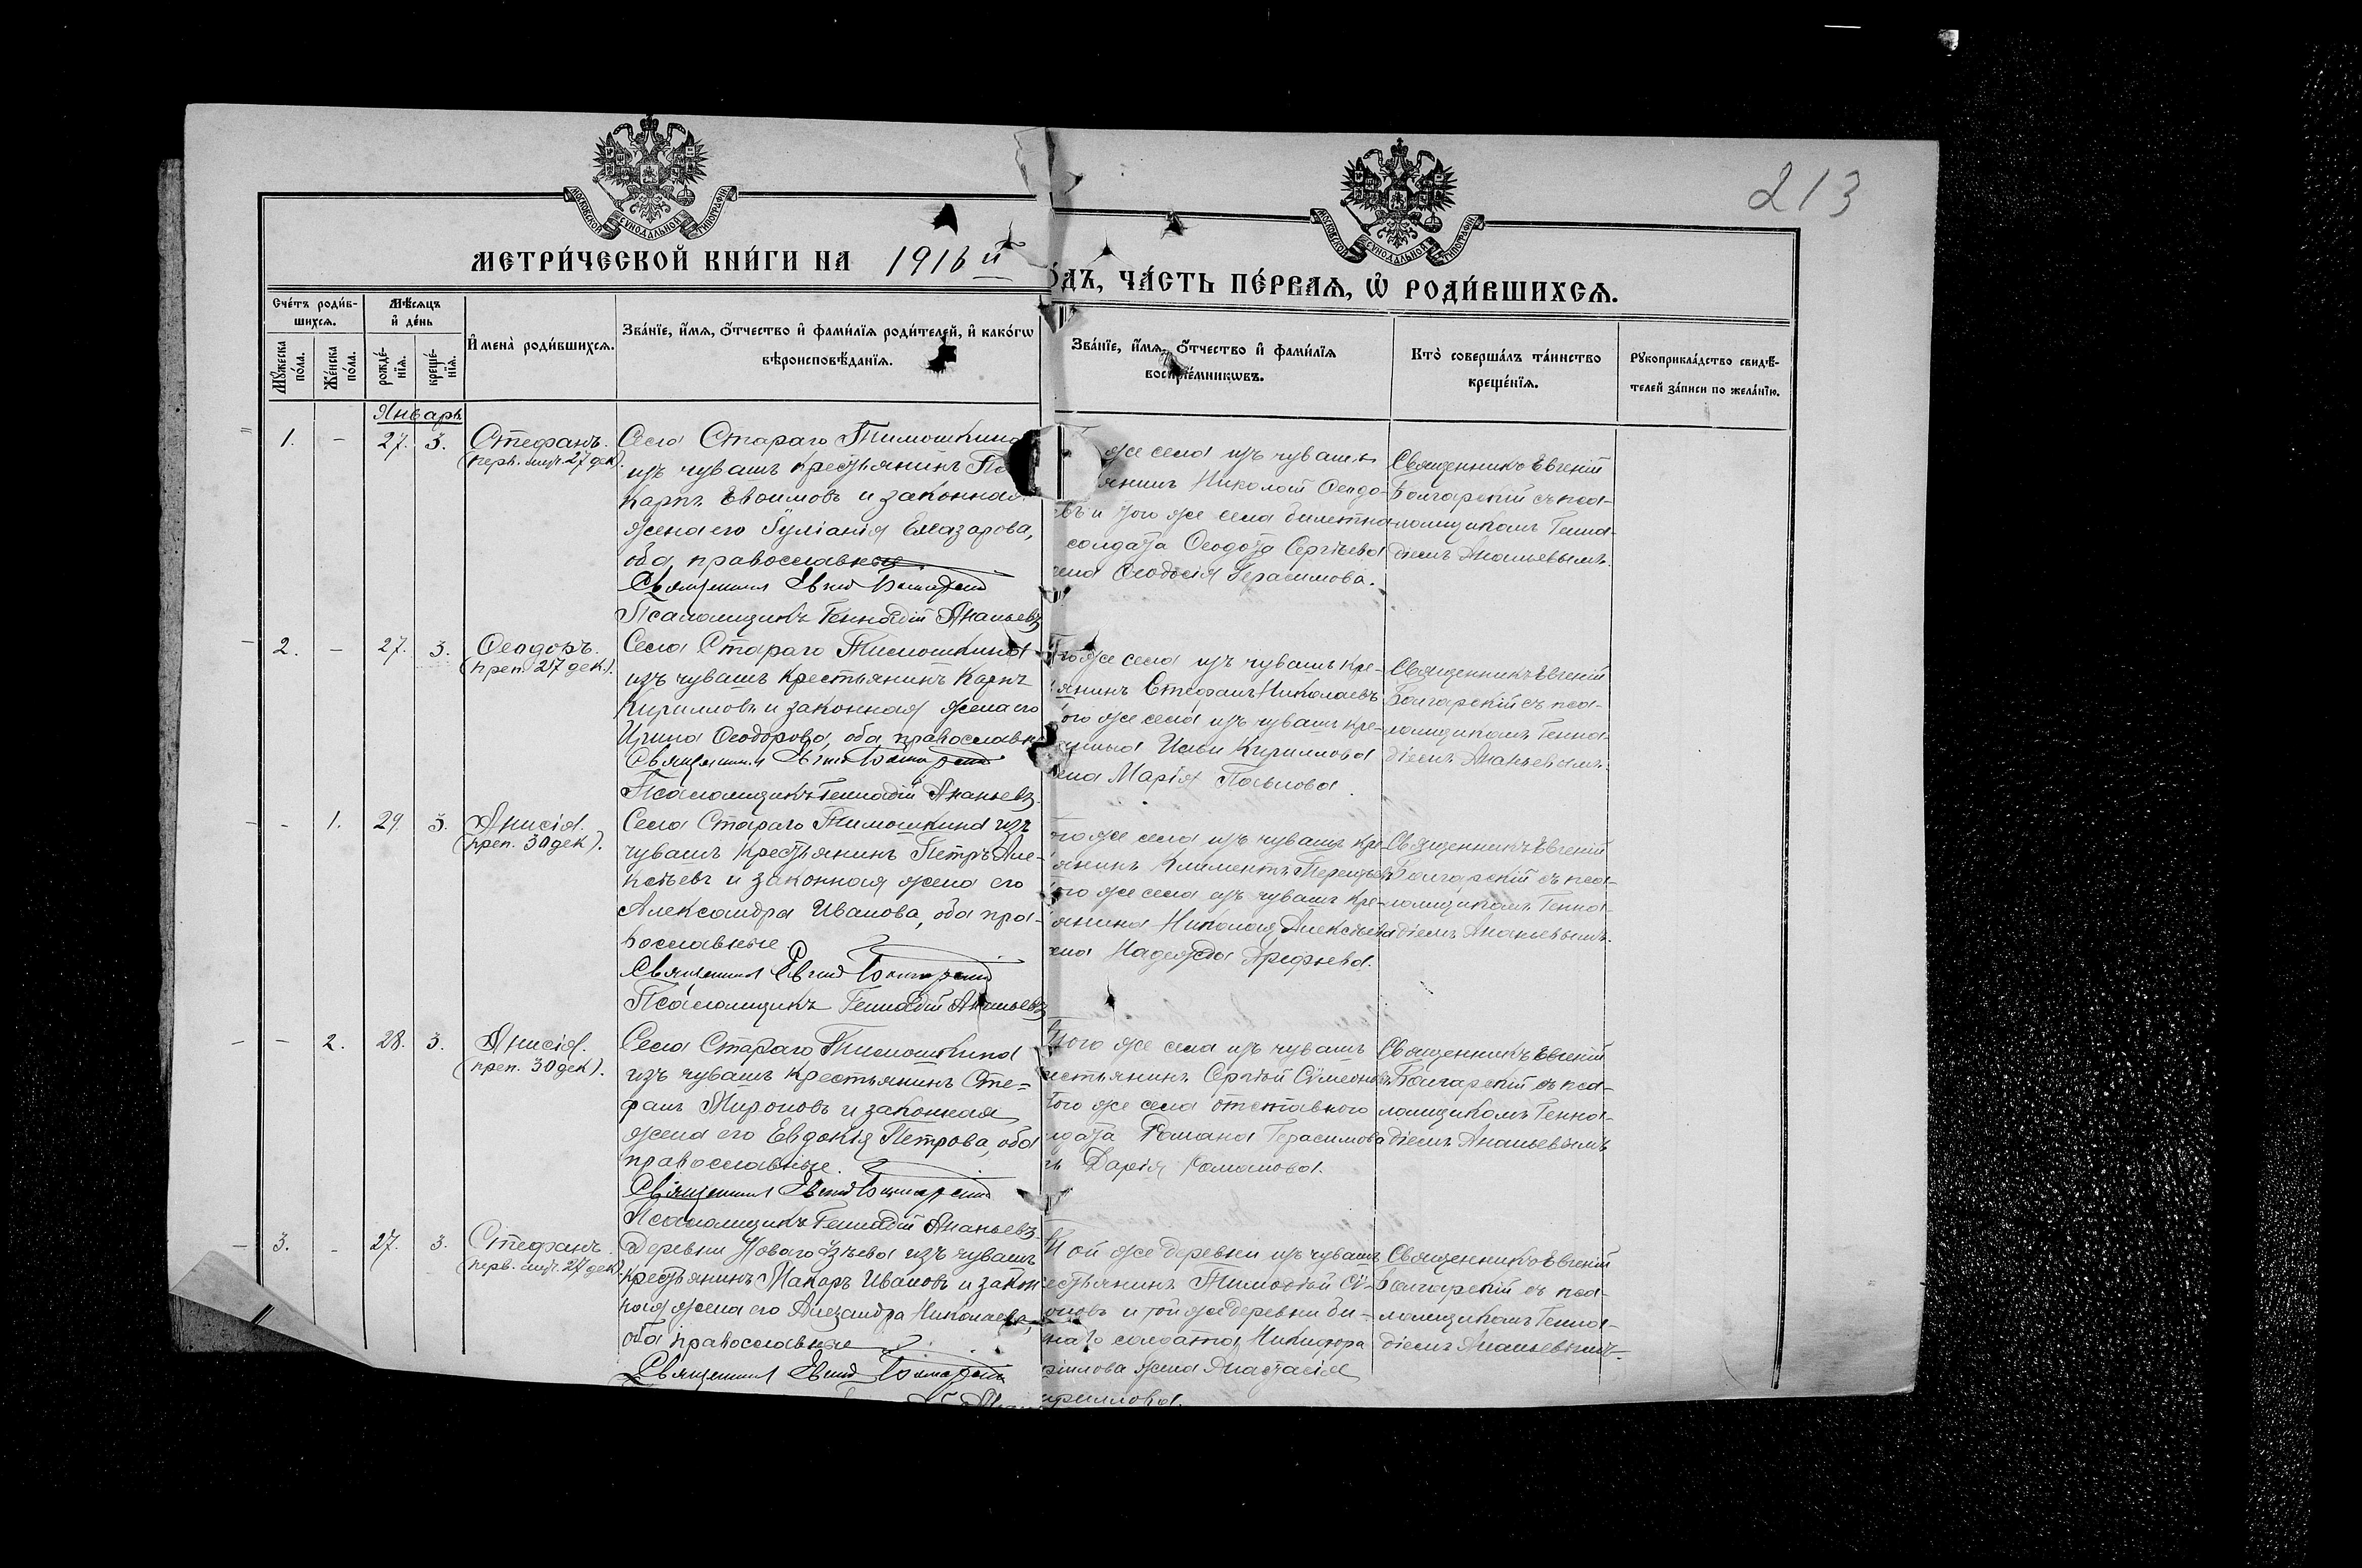 213
МОСКОВСКОЙ СУНОДАЛЬНОЙ ТИПОГРАФІИ
МОСКОВСКОЙ СУНОДАЛЬНОЙ ТИПОГРАФІИ
МЕТРИ́ЧЕСКОЙ КНИ́ГИ НА 1916 й
О́ДЪ, ЧА́СТЬ ПЕ́РВАѦ, Ѽ РОДИ́ВШИХСѦ.
Сче́тъ роди́вшихсѧ.
Мꙋ́жеска по́ла.
Же́нска по́ла.
Мѣ́сѧцъ и҆ де́нь
рожде́нїѧ.
креще́нїѧ.
И҆мена̀ роди́вшихсѧ.
Зва́нїе, и҆́мѧ, ѻ҆́тчество и҆ фами́лїѧ роди́телей, и҆ како́гѡ
вѣроисповѣ́данїѧ.
Зва́нїе, и҆́мѧ, ѻ҆́тчество и҆ фами́лїѧ
воспрїе́мникѡвъ.
Кто̀ соверша́лъ та́инство
креще́нїѧ.
Рꙋкоприкла́дство свидѣ́-
телей за́писи по жела́нїю.
Январь
1. - 27. 3. Стефанъ.
(перв. муч. 27 дек).
Села Стараго Тимошкина
изъ чувашъ крестьянинъ
Карпъ Евѳимовъ и законная
жена его Іуліанія Елазарова,
оба православные
Священникъ Евгеній Болгарскій
Псаломщикъ Геннадій Ананьевъ
же села изъ чувашъ
янинъ Николай Ѳеодо-
въ и того же села билетна
солдата Ѳеодота Сергѣева
жена Ѳеодосія Герасимова.
Священникъ Евгеній
Болгарскій съ пса-
ломщикомъ Генна-
діемъ Ананьевымъ.
2. - 27. 3. Ѳеодоръ.
(преп. 27 дек.).
Села Стараго Тимошкина
изъ чувашъ крестьянинъ Карпъ
Кирилловъ и законная жена его
Ирина Ѳеодорова, оба православн
Священникъ Евгеній Болгарскій
Псаломщикъ Геннадій Ананьевъ.
того же села изъ чувашъ кре-
янинъ Стефанъ Николаевъ
ого же села изъ чувашъ кре-
янина Ильи Кириллова
жена Марія Павлова.
Священникъ Евгеній
Болгарскій съ пса-
ломщикомъ Генна-
діемъ Ананьевымъ.
- 1. 29. 3. Анисія.
(преп. 30 дек).
Села Стараго Тимошкина изъ
чувашъ крестьянинъ Петръ Але-
ксѣевъ и законная жена его
Александра Иванова, оба пра-
вославные.
Священникъ Евгеній Болгарскій
Псаломщикъ Геннадій Ананьевъ
ого же села изъ чувашъ кре-
янинъ Климентъ
ого же села изъ чувашъ кре-
янина Николая Алексѣева
жена Надежда Арефьева.
Священникъ Евгеній
Болгарскій съ пса-
ломщикомъ Генна-
діемъ Ананьевымъ.
- 2. 28. 3. Анисія.
(преп. 30 дек).
Села Стараго Тимошкина
изъ чувашъ крестьянинъ Сте-
фанъ Мироновъ и законная
жена его Евдокія Петрова, оба
православные.
Священникъ Евгеній Болгарскій
Псаломщикъ Геннадій Ананьевъ.
Того же села изъ чувашъ
естьянинъ Сергѣй Сѵмеоновъ
того же села отставного
лдата Романа Герасимова
чь Дарія Романова.
Священникъ Евгеній
Болгарскій съ пса-
ломщикомъ Генна-
діемъ Ананьевымъ
3. - 27. 3. Стефанъ.
(перв. муч. 27 дек).
Деревни Новаго Узѣева изъ чувашъ
крестьянинъ Макаръ Ивановъ и закон
ная жена его Александра Николаева,
оба православные
Священникъ Евгеній Болгарскій
Той же деревни изъ чувашъ
естьянинъ Тимоѳей Сѵ-
оновъ и той же деревни би-
наго солдата Никифора
риллова жена Анастасія
ириллова.
Священникъ Евгеній
Болгарскій съ пса-
ломщикомъ Генна-
діемъ Ананьевымъ.